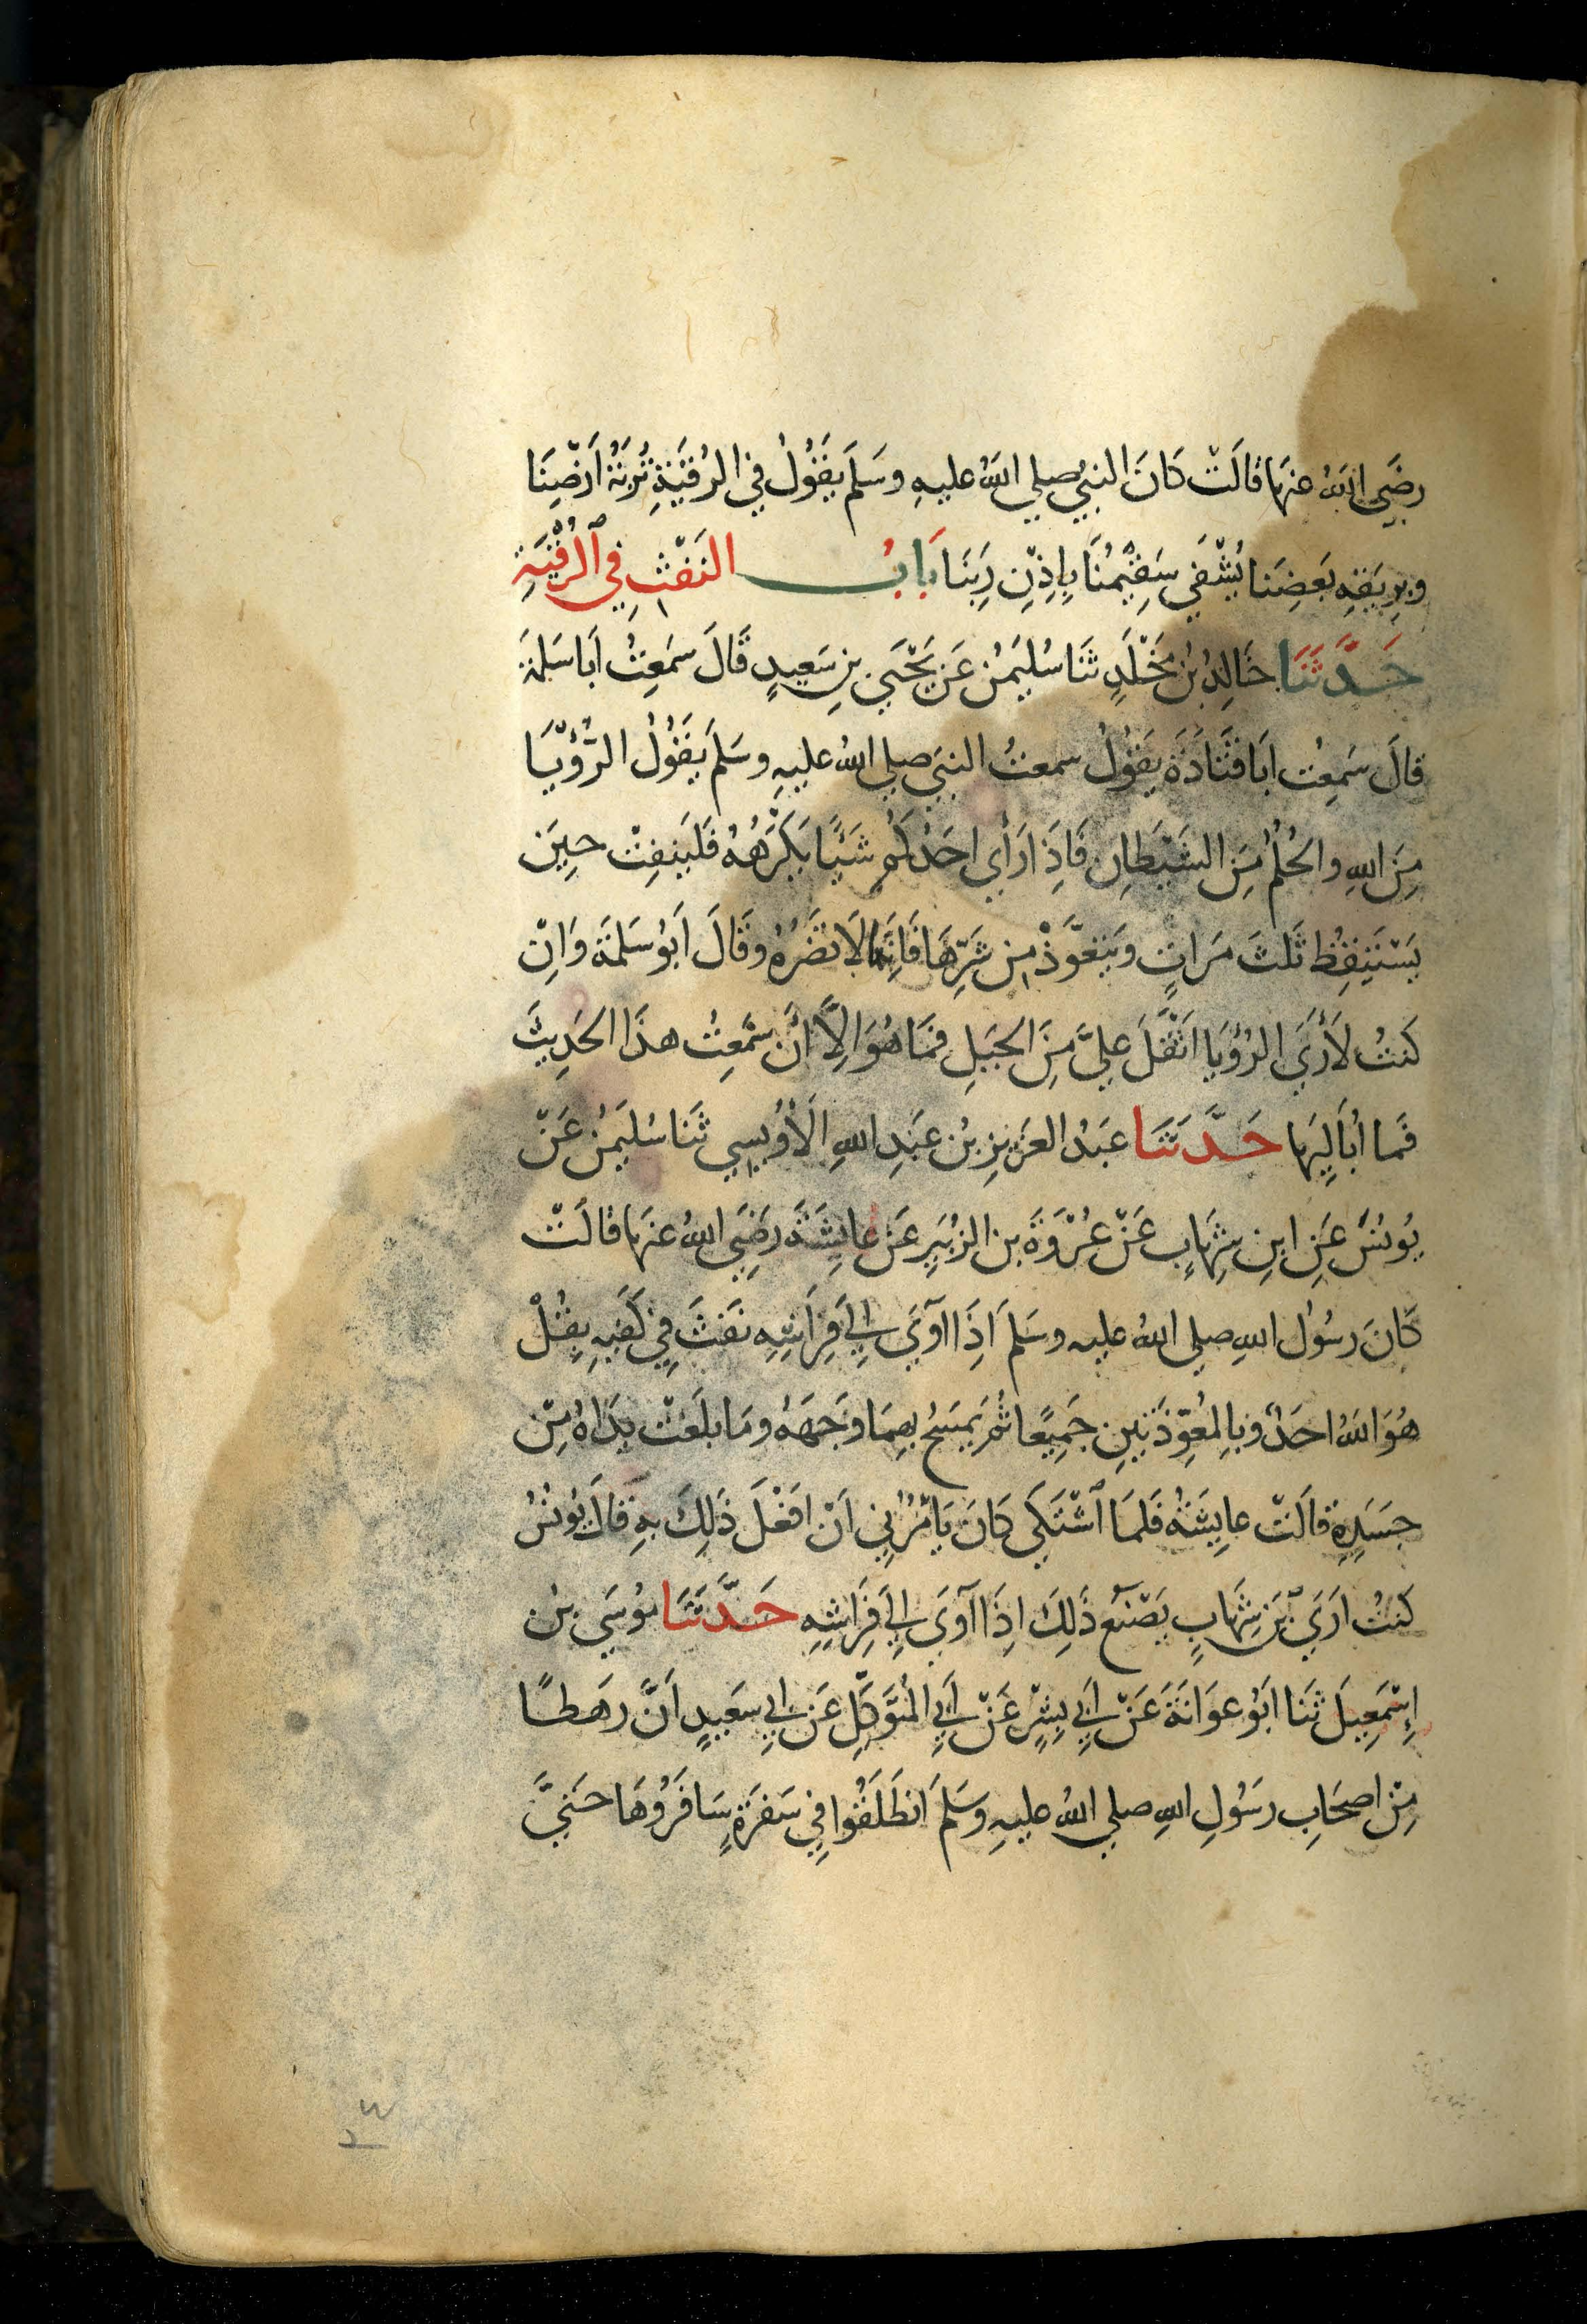 رضَي اللهُ عنهَا قالَتْ كانَ النبيُّ صلي اللهُ عليهِ وسَلمَ يقَوُلُ في الرُقيَةِ تُربَةُ اَرْضِنَا
وبِرِيقةِ بَعضِنَا يُشْفَي سَقِيْمُنَا بِاِذْنِ رَبِنَا بَابُ النَفْثِ فِي ٱلرُقْيَةِ
حَدَّثَنَا خَالِدُ بْنُ مَخْلَدٍ ثنَا سُليَمٰنُ عَن يَحْيَي بنِ سَعيدٍ قَالَ سَمعتُ اَبَا سَلمَةَ
قالَ سَمِعتُ ابَا قَتَادَةَ يقَوُلُ سمعتُ النبيَ صلي اللهُ عليهِ وسَلمَ يقَوُلُ الرُّؤيَا
مِنَ اللهِ والحُلُمُ مِنَ الشَيْطَانِ فَاِذَا رَأي احَدُكُم شَيًْا يَكْرَهُهُ فَليَنفِثْ حِيَن
يَسْتَيقِظُ ثَلثَ مَراتٍ ويَتعَوَّذْ مِن شَرِّهَا فَاِنَّهَا لاَ تضُرُهُ وقَالَ اَبُو سَلمَةَ وَاِنْ
كنتُ لَأرَي الرُؤيَا اثْقَلَ عليَّ مِنَ الجَبَلِ فمَا هُوَ اِلاَّ اَنْ سَمعِتُ هذَا الحَدِيثَ
فَما اُبَالِيهَا حَدَّثَنَا عَبدُ العَزيزِ بنُ عَبدِ اللهِ الاُوَيسِي ثنَا سُليَمٰنُ عَنْ
يُونسَُ عَنِ ابنِ شِهَابٍ عَنْ عُرْوَةَ بن الزبُيَرِ عَن عايِشَةَ رضَيَ اللهُ عنهَا قالَتْ
كانَ رسُولُ اللهِ صلي اللهُ عليه وسَلمَ اِذَا اَوَي اِلَي فِرَاشِهِ نفَثَ فِي كَفيهِ بِقُلْ
هُوَ اللهُ احَدٌ وبِالمعُوِّذَتَينِ جَميِعًا ثمُ يَمسَحُ بهِمَا وَجهَهُ ومَا بلَغتْ يدَاهُ مِنْ
جسَدِهِ قالَتْ عايِشَةُ فَلمَا ٱشْتَكَي كانَ يَأمُرُنِي اَنْ افعَلَ ذَلِكَ بِهِ قالَ يُونسُُ
كنتُ ارَي بْنَ شِهَابٍ يَصْنَع ذَلِكَ اِذَا اَوَي اِلَي فِرَاشِهِ حَدَّثَنَا مُوسَي بنُ
اِسْمَعِيلَ ثنَا ابُو عوَانَةَ عَنْ اَبِي بِشْرٍ عَنْ اَبِي المُتَوَكِّلِ عَن اَبِي سَعيدٍ اَنَّ رهَطًا
مِنْ اصحَابِ رسُولِ اللهِ صلي اللهُ عليهِ وسَلمَ انطَلَقُوا فِي سَفرَةٍ سَافَرُوهَا حَتيَّ